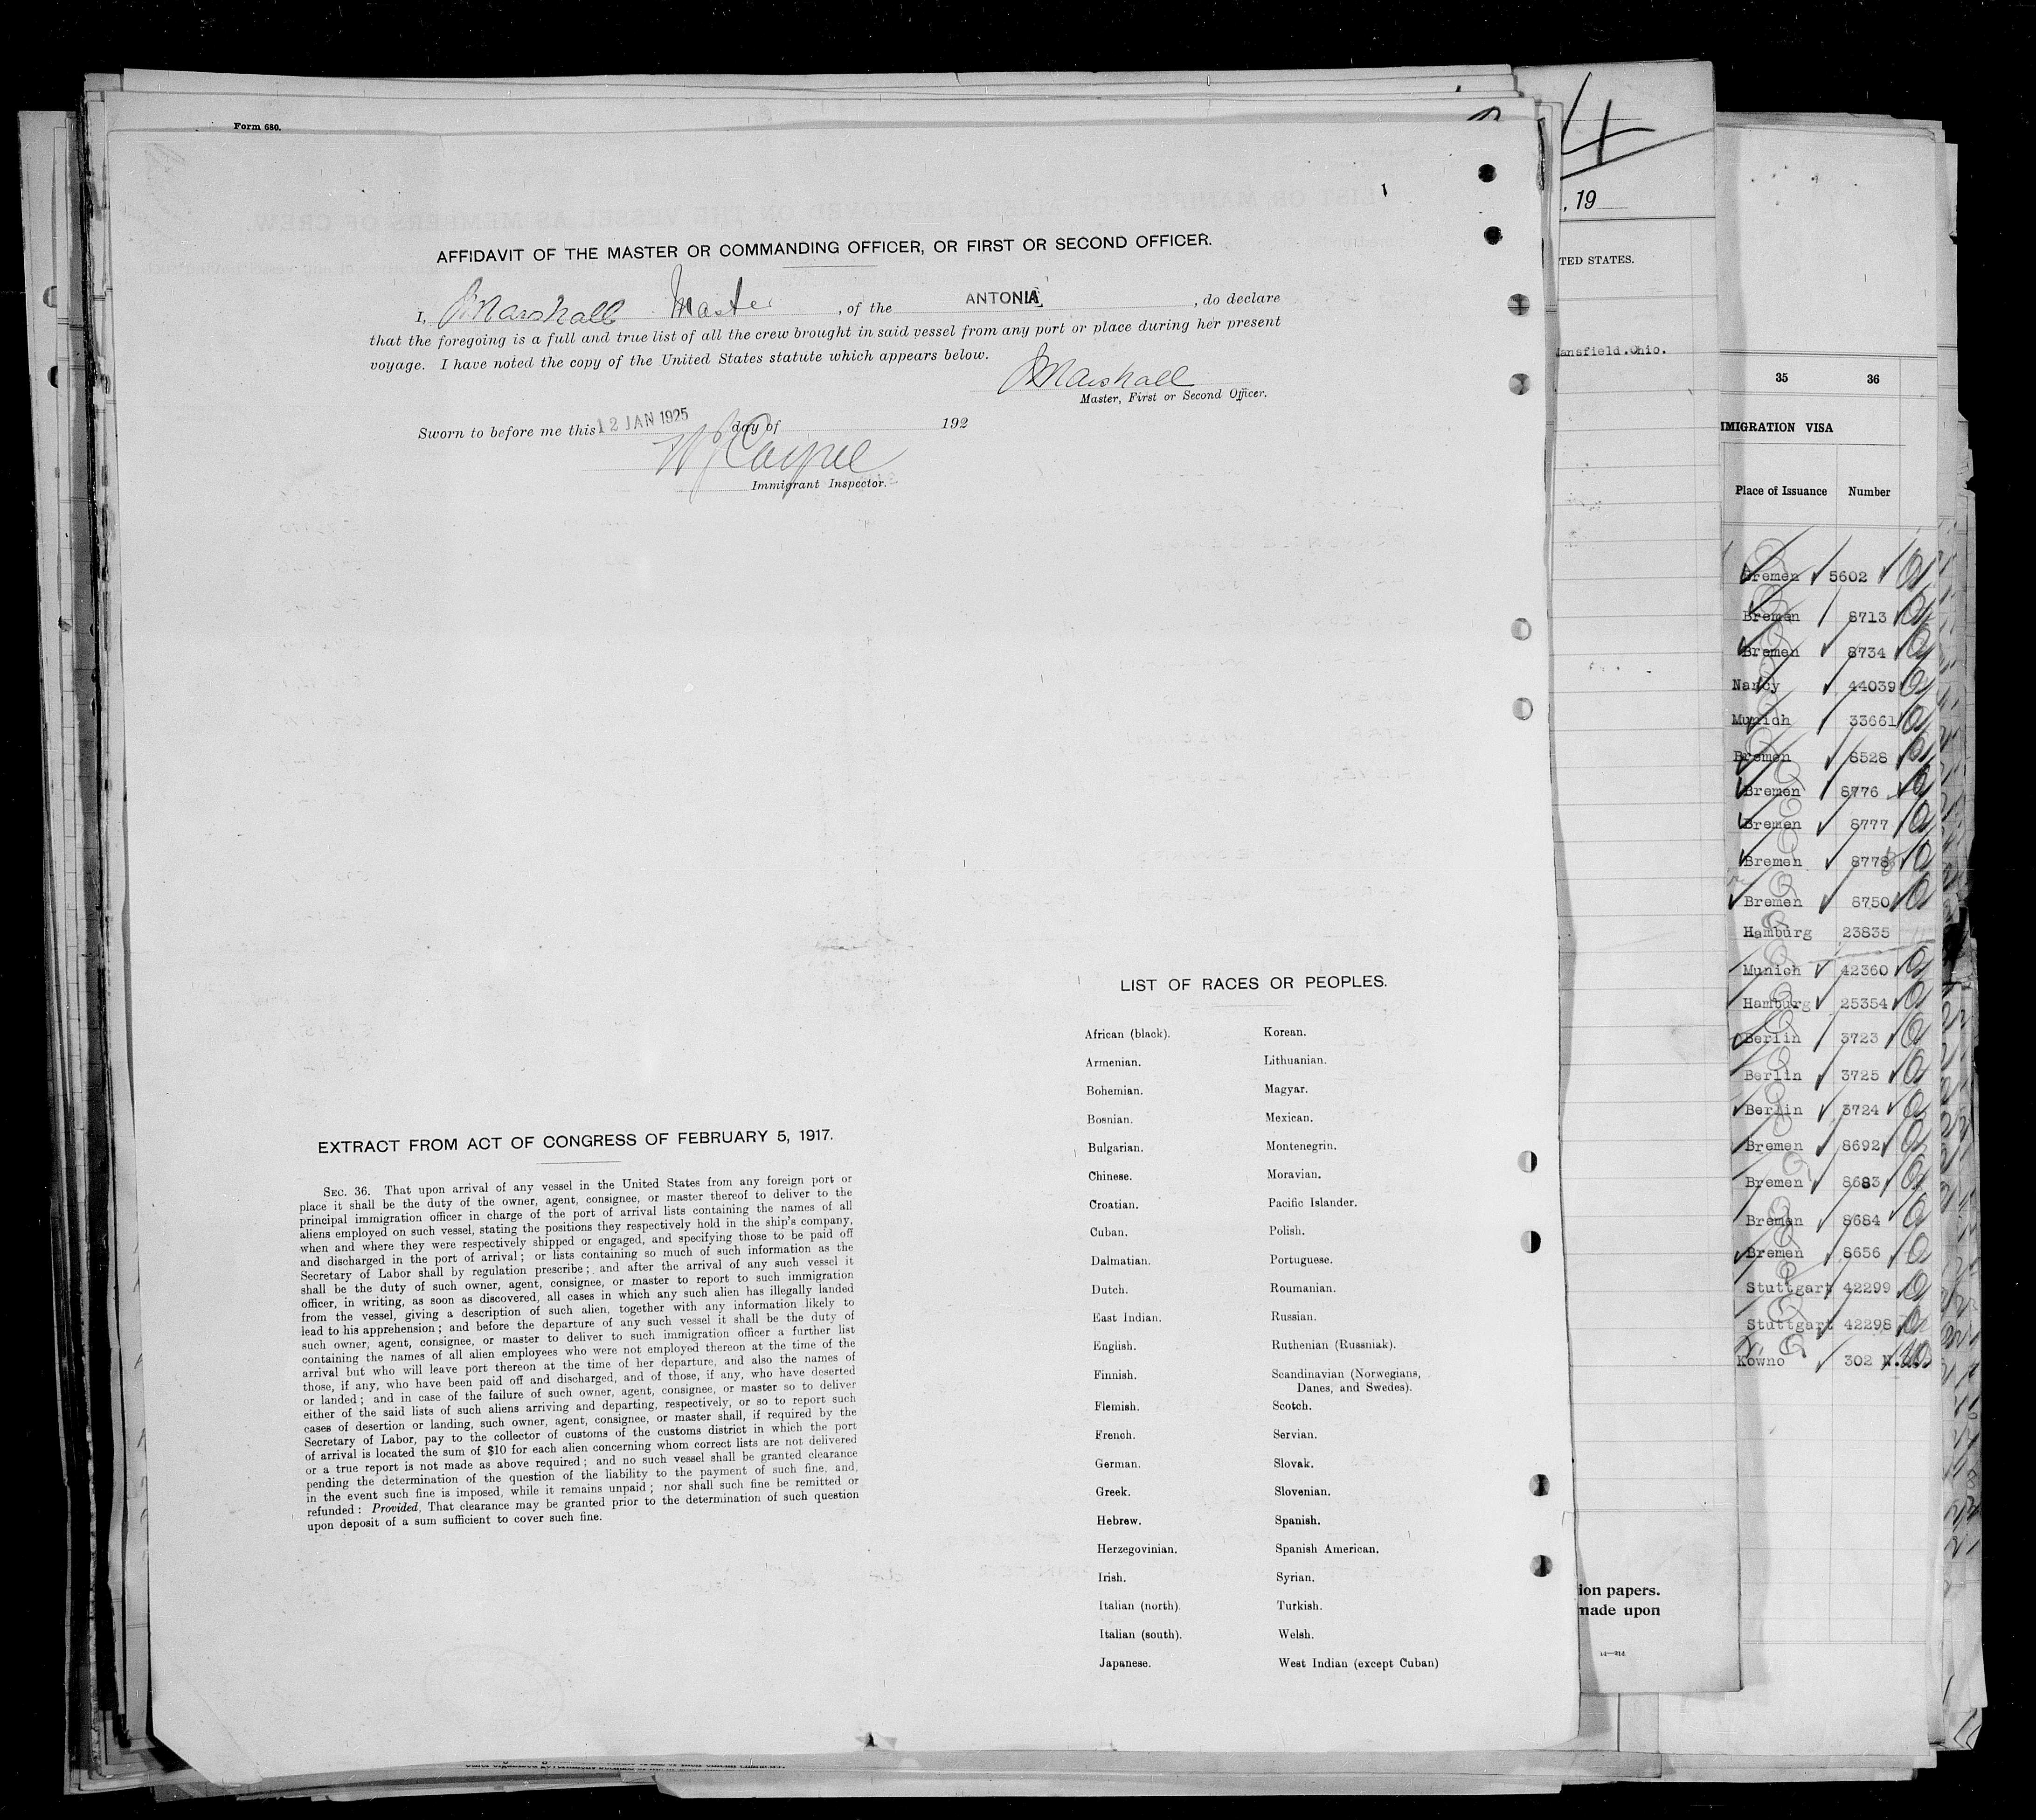 Form 680.
AFFIDAVIT OF THE MASTER OR COMMANDING OFFICER, OR FIRST OR SECOND OFFICER.
I, Marshall Master, of the ANTONIA, do declare
that the foregoing is a full and true list of all the crew brought in said vessel from any port or place during her present
voyage. I have noted the copy of the United States statute which appears below.
Marshall
Master, First or Second Officer.
Sworn to before me this 12 JAN 1925 day of 192
Immigrant Inspector.
EXTRACT FROM ACT OF CONGRESS OF FEBRUARY 5, 1917.
SEC. 36. That upon arrival of any vessel in the United States from any foreign port or
place it shall be the duty of the owner, agent, consignee, or master thereof to deliver to the
principal immigration officer in charge of the port of arrival lists containing the names of all
aliens employed on such vessel, stating the positions they respectively hold in the ship's company,
when and where they were respectively shipped or engaged, and specifying those to be paid off
and discharged in the port of arrival; or lists containing so much of such information as the
Secretary of Labor shall by regulation prescribe; and after the arrival of any such vessel it
shall be the duty of such owner, agent, consignee, or master to report to such immigration
officer, in writing, as soon as discovered, all cases in which any such alien has illegally landed
from the vessel, giving a description of such alien, together with any information likely to
lead to his apprehension; and before the departure of any such vessel it shall be the duty of
such owner, agent, consignee, or master to deliver to such immigration officer a further list
containing the names of all alien employees who were not employed thereon at the time of the
arrival but who will leave port thereon at the time of her departure, and also the names of
those, if any, who have been paid off and discharged, and of those, if any, who have deserted
or landed; and in case of the failure of such owner, agent, consignee, or master so to deliver
either of the said lists of such aliens arriving and departing, respectively, or so to report such
cases of desertion or landing, such owner, agent, consignee, or master shall, if required by the
Secretary of Labor, pay to the collector of customs of the customs district in which the port
of arrival is located the sum of $10 for each alien concerning whom correct lists are not delivered
or a true report is not made as above required; and no such vessel shall be granted clearance
pending the determination of the question of the liability to the payment of such fine, and,
in the event such fine is imposed, while it remains unpaid; nor shall such fine be remitted or
refunded: Provided, That clearance may be granted prior to the determination of such question
upon deposit of a sum sufficient to cover such fine.
LIST OF RACES OR PEOPLES.
African (black). Korean.
Armenian. Lithuanian.
Bohemian. Magyar.
Bosnian. Mexican.
Bulgarian. Montenegrin.
Chinese. Moravian.
Croatian. Pacific Islander.
Cuban. Polish.
Dalmatian. Portuguese.
Dutch. Roumanian.
East Indian. Russian.
English. Ruthenian (Russniak).
Finnish. Scandinavian (Norwegians,
Danes, and Swedes).
Flemish. Scotch.
French. Servian.
German. Slovak.
Greek. Slovenian.
Hebrew. Spanish.
Herzegovinian. Spanish American.
Irish. Syrian.
Italian (north). Turkish.
Italian (south). Welsh.
Japanese. West Indian (except Cuban)
4
, 19
TED STATES.
Mansfield.Ohio.
ion papers.
made upon
14—214
35 36
IMIGRATION VISA
Place of Issuance Number
Bremen 5602
Bremen 8713
Bremen 8734
Nancy 44039
Munich 33661
Bremen 8528
Bremen 8776
Bremen 8777
Bremen 8778
Bremen 8750
Hamburg 23835
Munich 42360
Hamburg 25354
Berlin 3723
Berlin 3725
Berlin 3724
Bremen 8692
Bremen 8683
Bremen 8684
Bremen 8656
Stuttgart 42299
Stuttgart 42298
Kowno 302